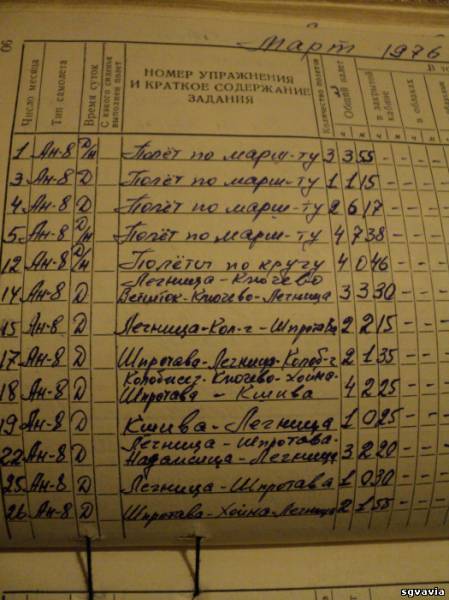 90
Март 1976
В то
Число месяца
Тип самолета
Время суток
С какого сиденья выполнен полет
НОМЕР УПРАЖНЕНИЯ
И КРАТКОЕ СОДЕРЖАНИЕ
ЗАДАНИЯ
Количество полетов
Общий налет
в закрытой кабине
в облаках
1 Ан-8 Д/Н Полёт по марш-ту 3 3 55 - - - -
3 Ан-8 Д Полёт по марш-ту 1 1 15 - - - -
4 Ан-8 Д Полёт по марш-ту 2 6 17 - - - -
5 Ан-8 Д/Н Полёт по марш-ту 4 7 38 - - - -
12 Ан-8 Д/Н Полёты по кругу 4 0 46 - - - -
Легница-Ключево
14 Ан-8 Д Ключево-Легница 3 3 30 - - - -
15 Ан-8 Д Легница-Кол-г-Шпротава 2 2 15 - - - -
17 Ан-8 Д Шпротава-Легница-Колоб-г 2 1 35 - - - -
Ключево-Хойна-
18 Ан-8 Д Шпротава - Кшива 4 2 25 - - - -
19 Ан-8 Д Кшива-Легница 1 0 25 - - - -
Легница-Шпротава-
22 Ан-8 Д Легница 3 2 20 - - - -
25 Ан-8 Д Легница-Шпротава 1 0 30 - - - -
26 Ан-8 Д Шпротава-Хойна-Легница 2 1 55 - - - -
sgvavia